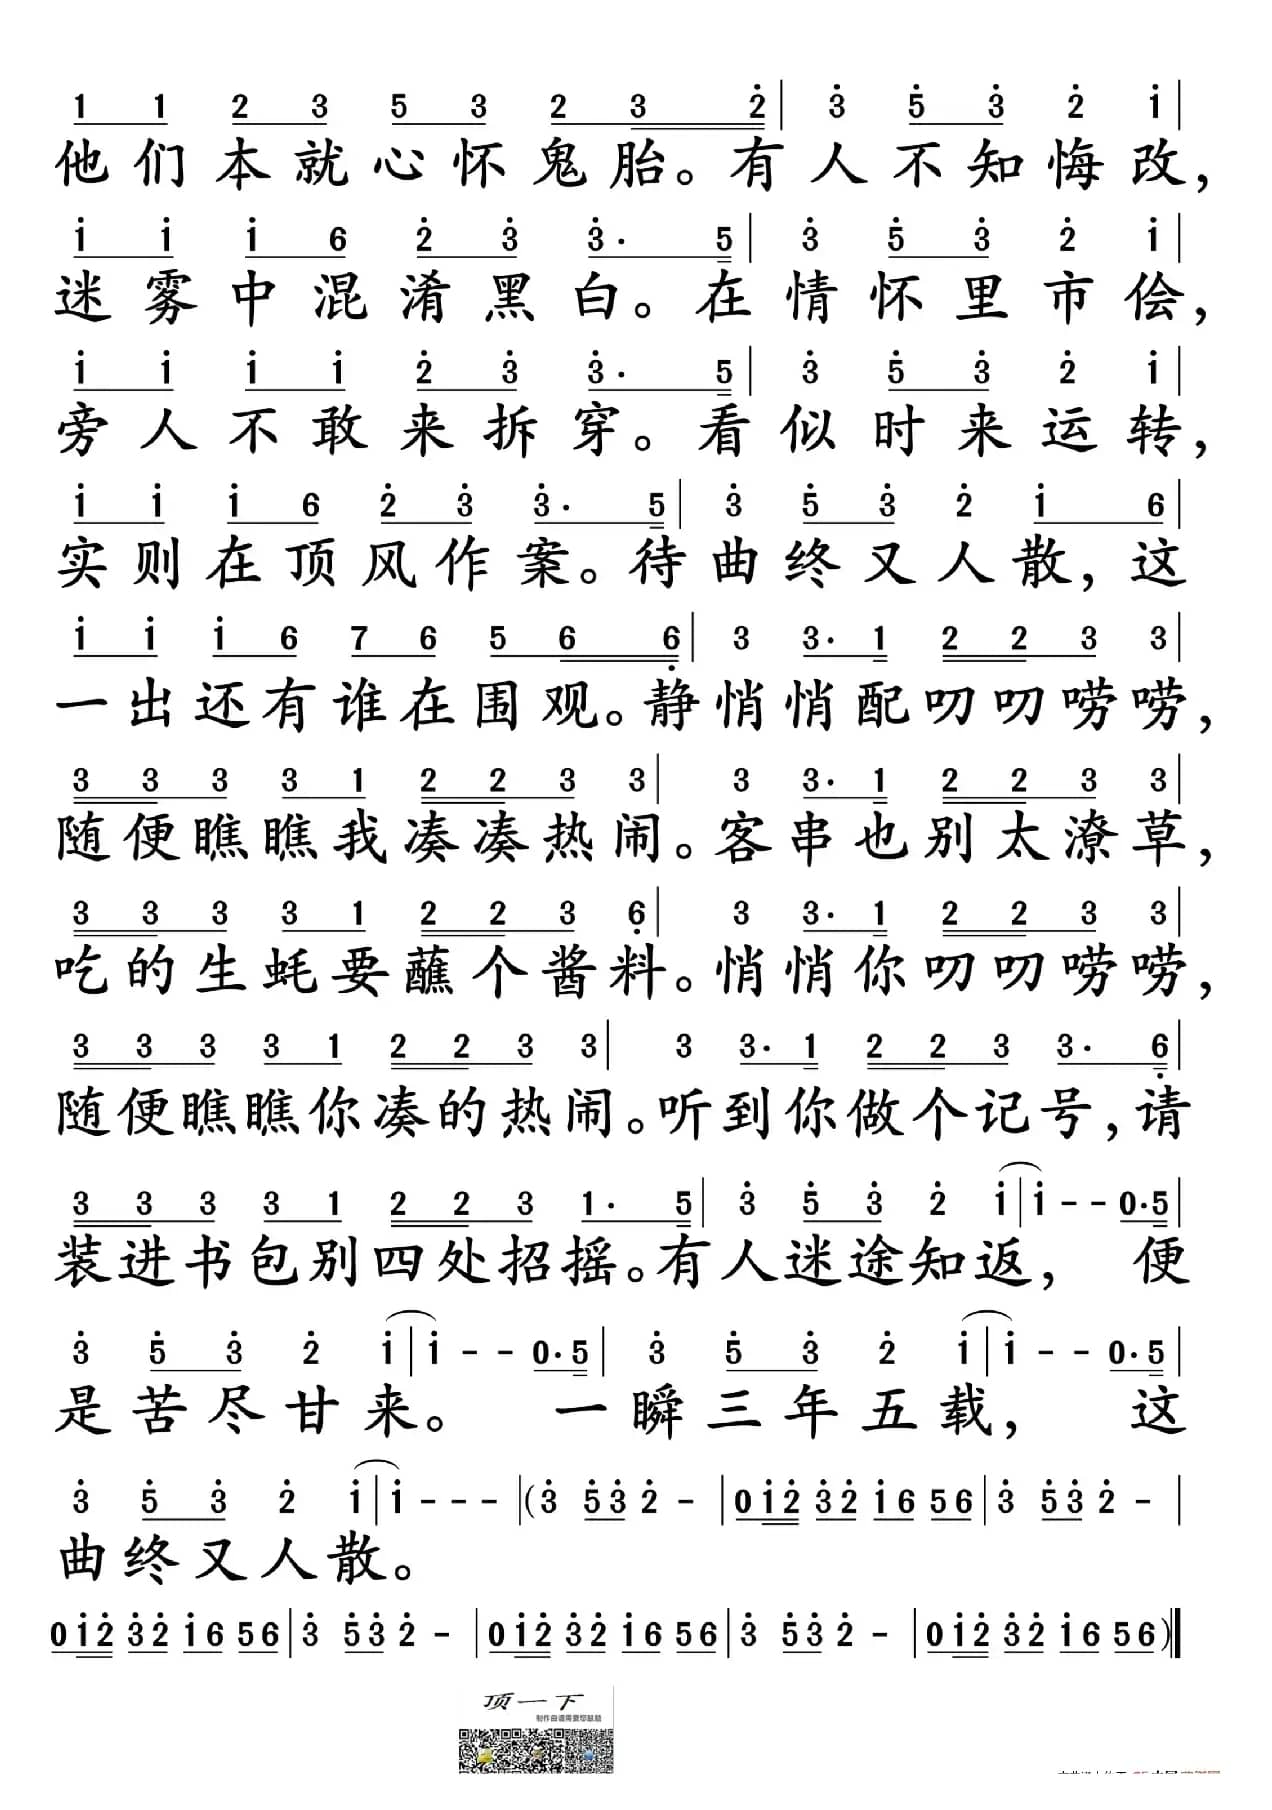 1 1 2 3 5 3 2 3 2̇ | 3̇ 5̇ 3̇ 2̇ 1̇ |
他们本就心怀鬼胎。有人不知悔改，
1̇ 1̇ 1̇ 6 2̇ 3̇ 3̇· 5 | 3̇ 5̇ 3̇ 2̇ 1̇ |
迷雾中混淆黑白。在情怀里市侩，
1̇ 1̇ 1̇ 1̇ 2̇ 3̇ 3̇· 5 | 3̇ 5̇ 3̇ 2̇ 1̇ |
旁人不敢来拆穿。看似时来运转，
1̇ 1̇ 1̇ 6 2̇ 3̇ 3̇· 5 | 3̇ 5̇ 3̇ 2̇ 1̇ 6 |
实则在顶风作案。待曲终又人散，这
1̇ 1̇ 1̇ 6 7 6 5 6 6̣ | 3 3· 1 2 2 3 3 |
一出还有谁在围观。静悄悄配叨叨唠唠，
3 3 3 3 1 2 2 3 3 | 3 3· 1 2 2 3 3 |
随便瞧瞧我凑凑热闹。客串也别太潦草，
3 3 3 3 1 2 2 3 6̣ | 3 3· 1 2 2 3 3 |
吃的生蚝要蘸个酱料。悄悄你叨叨唠唠，
3 3 3 3 1 2 2 3 3 | 3 3· 1 2 2 3 3· 6̣ |
随便瞧瞧你凑的热闹。听到你做个记号，请
3 3 3 3 1 2 2 3 1· 5 | 3̇ 5̇ 3̇ 2̇ 1̇ | 1̇ - - 0·5 |
装进书包别四处招摇。有人迷途知返，便
3̇ 5̇ 3̇ 2̇ 1̇ | 1̇ - - 0·5 | 3̇ 5̇ 3̇ 2̇ 1̇ | 1̇ - - 0·5 |
是苦尽甘来。一瞬三年五载，这
3̇ 5̇ 3̇ 2̇ 1̇ | 1̇ - - - | (3̇ 5̇3̇ 2̇ - | 01̇2̇ 3̇2̇ 1̇6 56 | 3̇ 5̇3̇ 2̇ - |
曲终又人散。
01̇2̇ 3̇2̇ 1̇6 56 | 3̇ 5̇3̇ 2̇ - | 01̇2̇ 3̇2̇ 1̇6 56 | 3̇ 5̇3̇ 2̇ - | 01̇2̇ 3̇2̇ 1̇6 56 )‖
顶一下
制作曲谱需要您鼓励